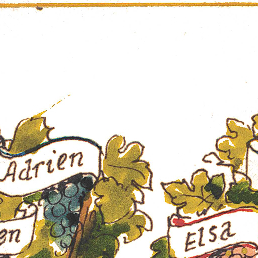 Adrien
Elsa